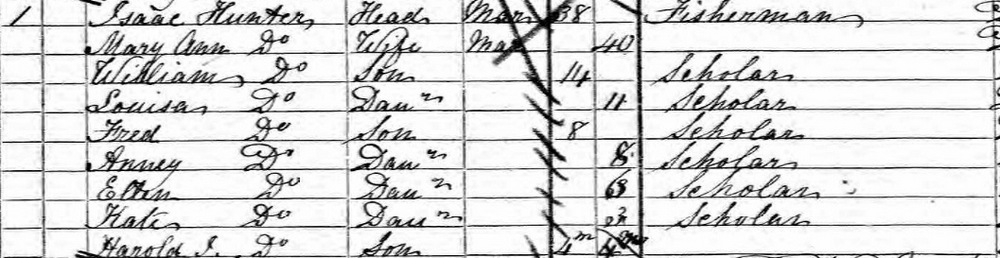 1 Isaac Hunter Head Mar 38 Fisherman
Mary Ann Do Wife Mar 40
William Do Son 14 Scholar
Louisa Do Daur 11 Scholar
Fred Do Son 8 Scholar
Anney Do Daur 8 Scholar
Ellen Do Daur Scholar
Kate Do Daur Scholar
Harold I. Do Son 4m